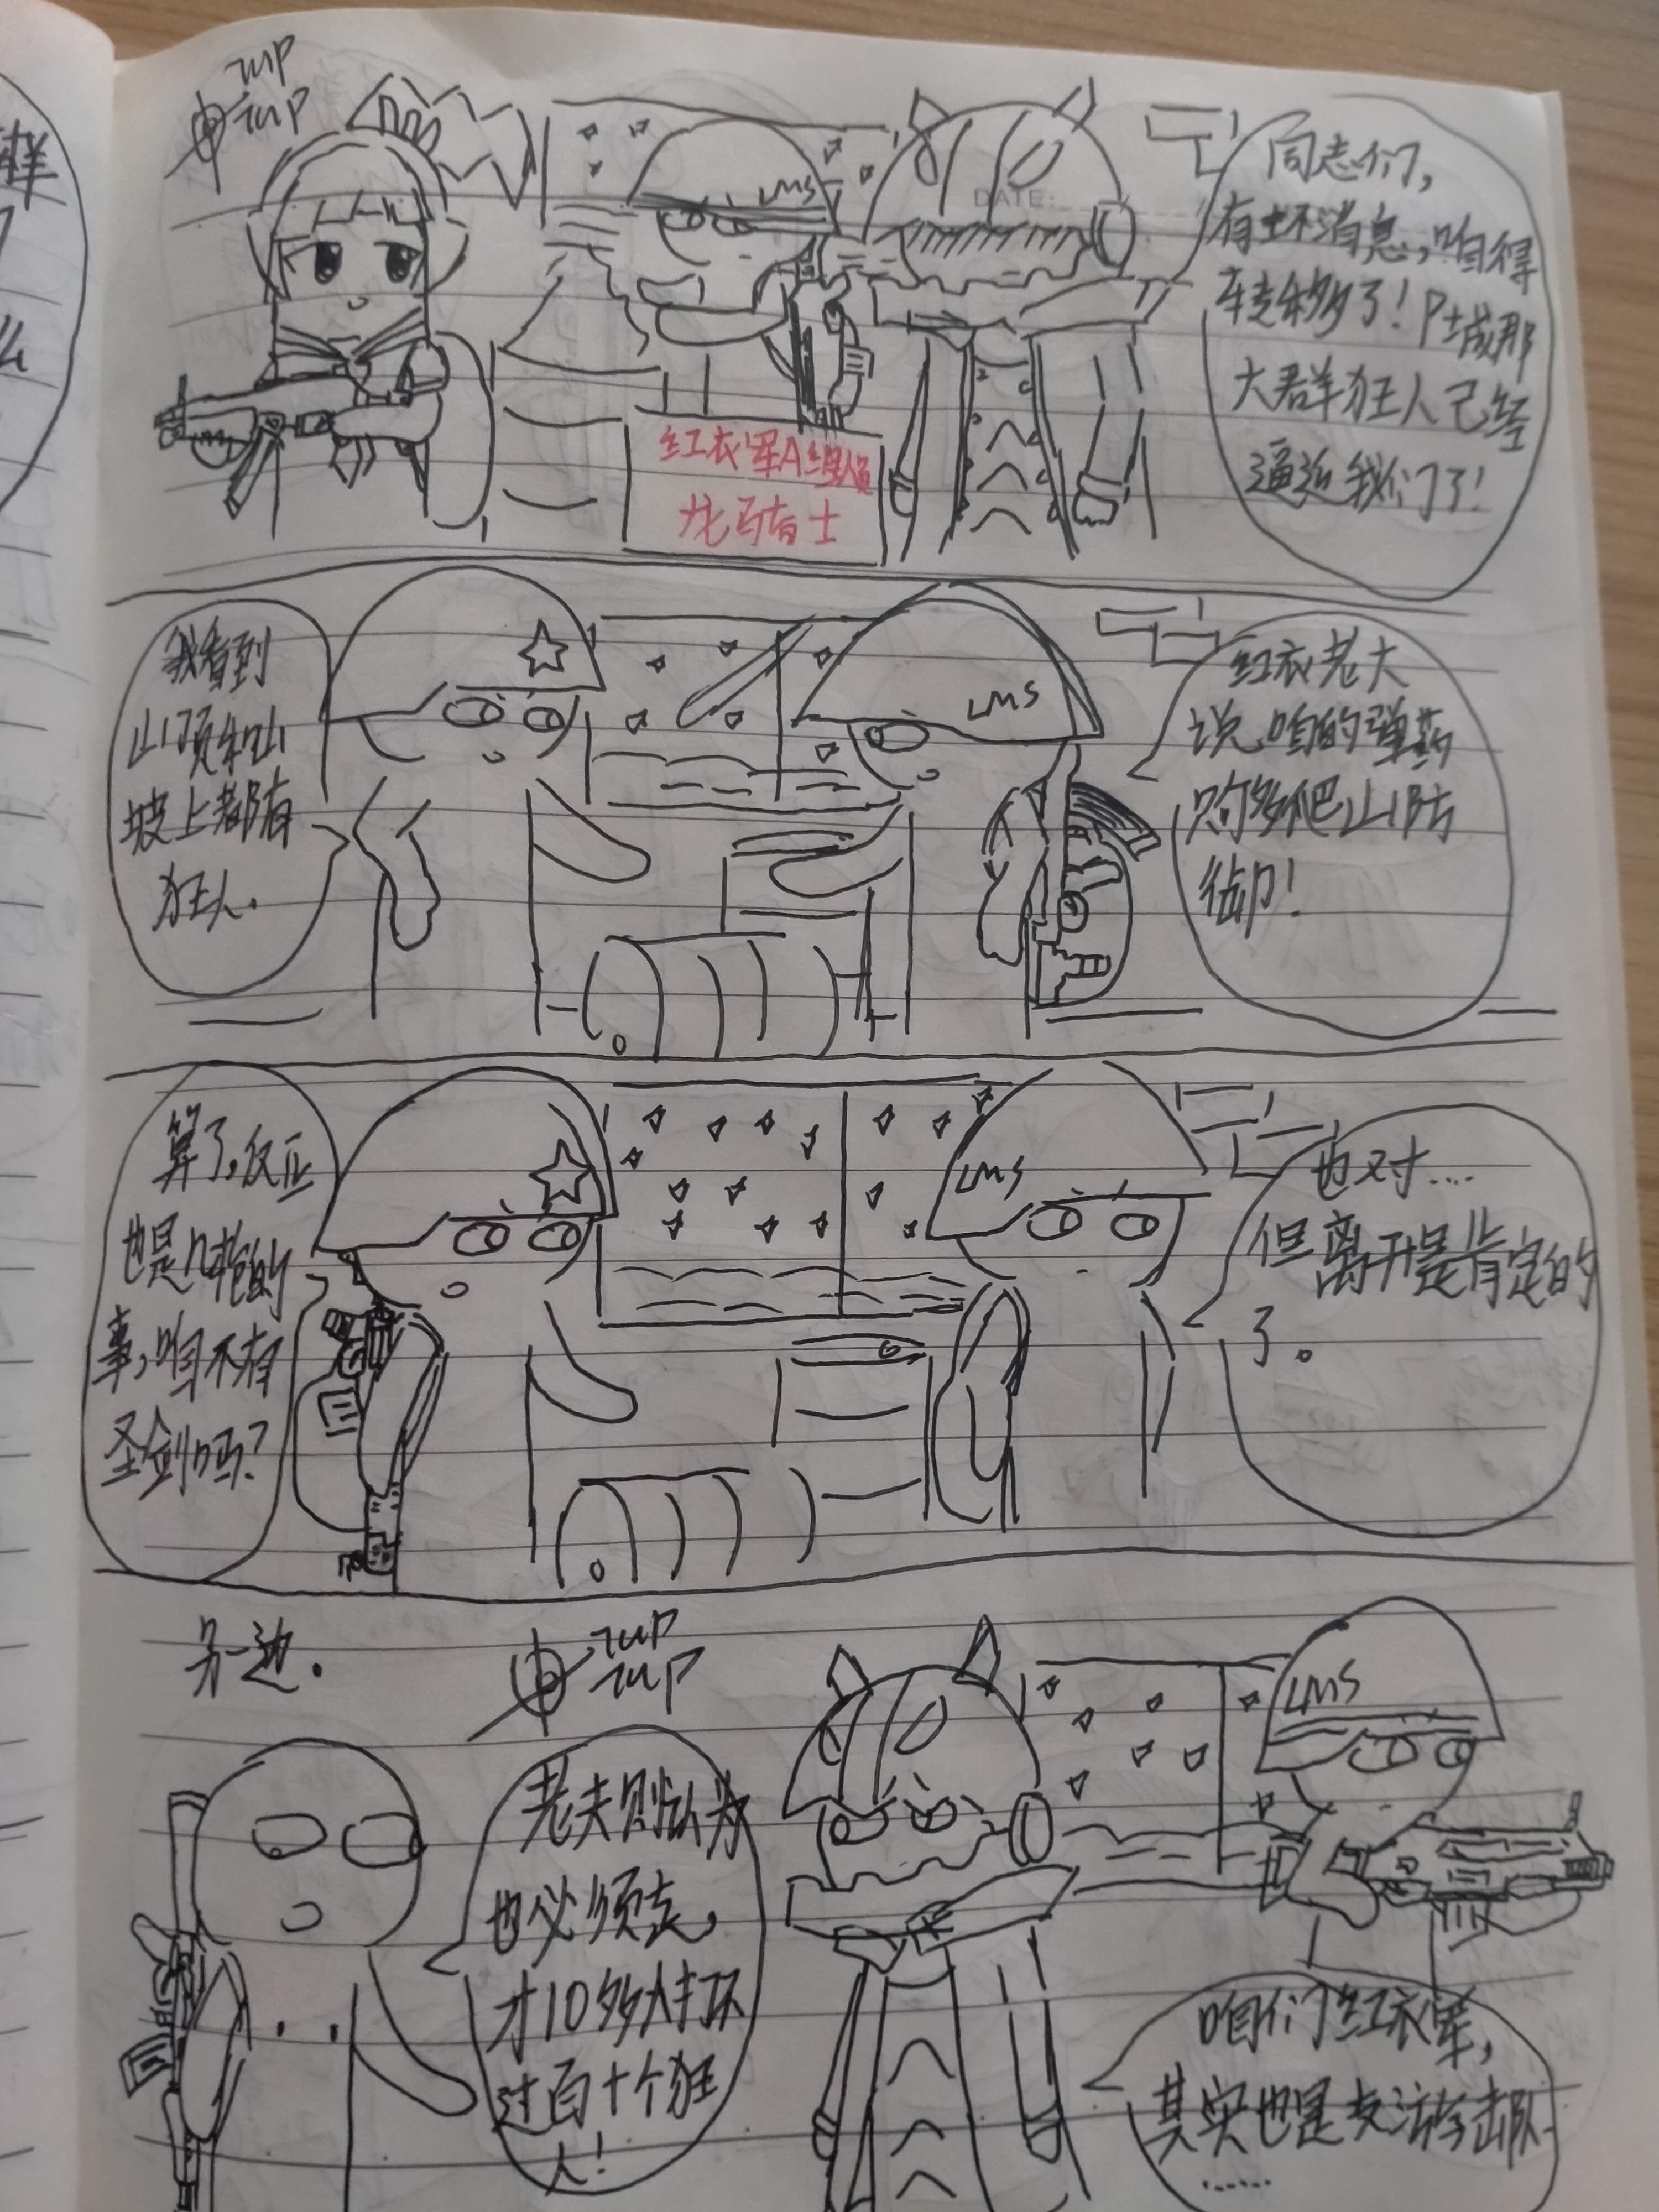 zup
zup
LMS
DATE:
同志们,
有坏消息,咱得
转移了!P城那
大群狂人已经
逼近我们了!
红衣军A组人员
龙骑士
我看到
山顶和山
坡上都有
狂人.
LMS
红衣老大
说,咱的弹药
够多爬山防
御!
算了,反正
也是几枪的
事,咱不有
圣剑吗?
LMS
也对....
但离开是肯定的
了。
另一边.
zup
zup
LMS
老夫则认为
也必须走,
才10多人打不
过百十个狂
人!
咱们红衣军,
其实也是支游击队
......